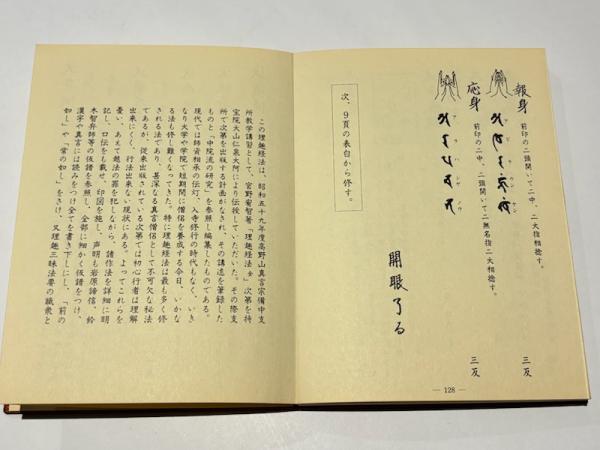 報身
前印の二頭開いて二中、二大指相捻す。
三反
応身
前印の二中、二頭開いて二無名指二大相捻す。
三反
次、9頁の表白から修す。
開眼了る
― 128 ―
この理趣経法は、昭和五十九年度高野山真言宗備中支
所教学講習として、宮野宥智著『理趣経法』次第を持
宝院大山仁泉大阿により伝授していただいた。その際支
所で次第を出版する計画がなされ、その講述を筆録した
ものと「中院流の研究」を参照し編集したものである。
現代では師資相承の伝灯、入寺修行の時代もなく、いき
なり大学や学院で短期間に僧侶を養成する今日、いかな
る法も修し難くなってきた。特に理趣経法は最も多く修
される法であり、甚深なる真言僧侶として不可欠な秘法
であるが、従来出版されている次第では初心行者は理解
出来にくく、行法出来ない現状にある。よってこれらを
憂い、あえて越法の罪を犯しながら、諸作法を詳細に明
記し、口伝をも載せ、印図を施し、声明も岩原諦信、鈴
木智弁師等の仮譜を参照し、全部に細かく仮譜をつけ、
漢字や真言には読み下しを全て書き下しにし、「前の
如し」や「常の如し」をさけ、又理趣三昧法要の職衆と